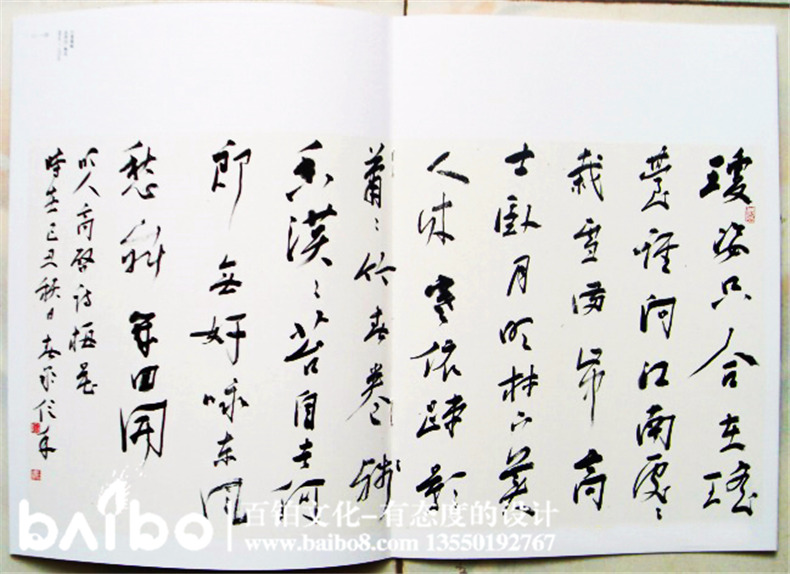 瓊姿只合在瑶
臺誰向江南處〻
栽雪滿山中高
士臥月明林下美
人來寒依疎影
蕭〻竹春卷殘
香漠〻苔自去何
郎無好咏东風
愁寂幾回開
明人高啓詩梅花
時在己丑秋日春
baibo
百铂文化-有态度的设计
www.baibo8.com 13550192767